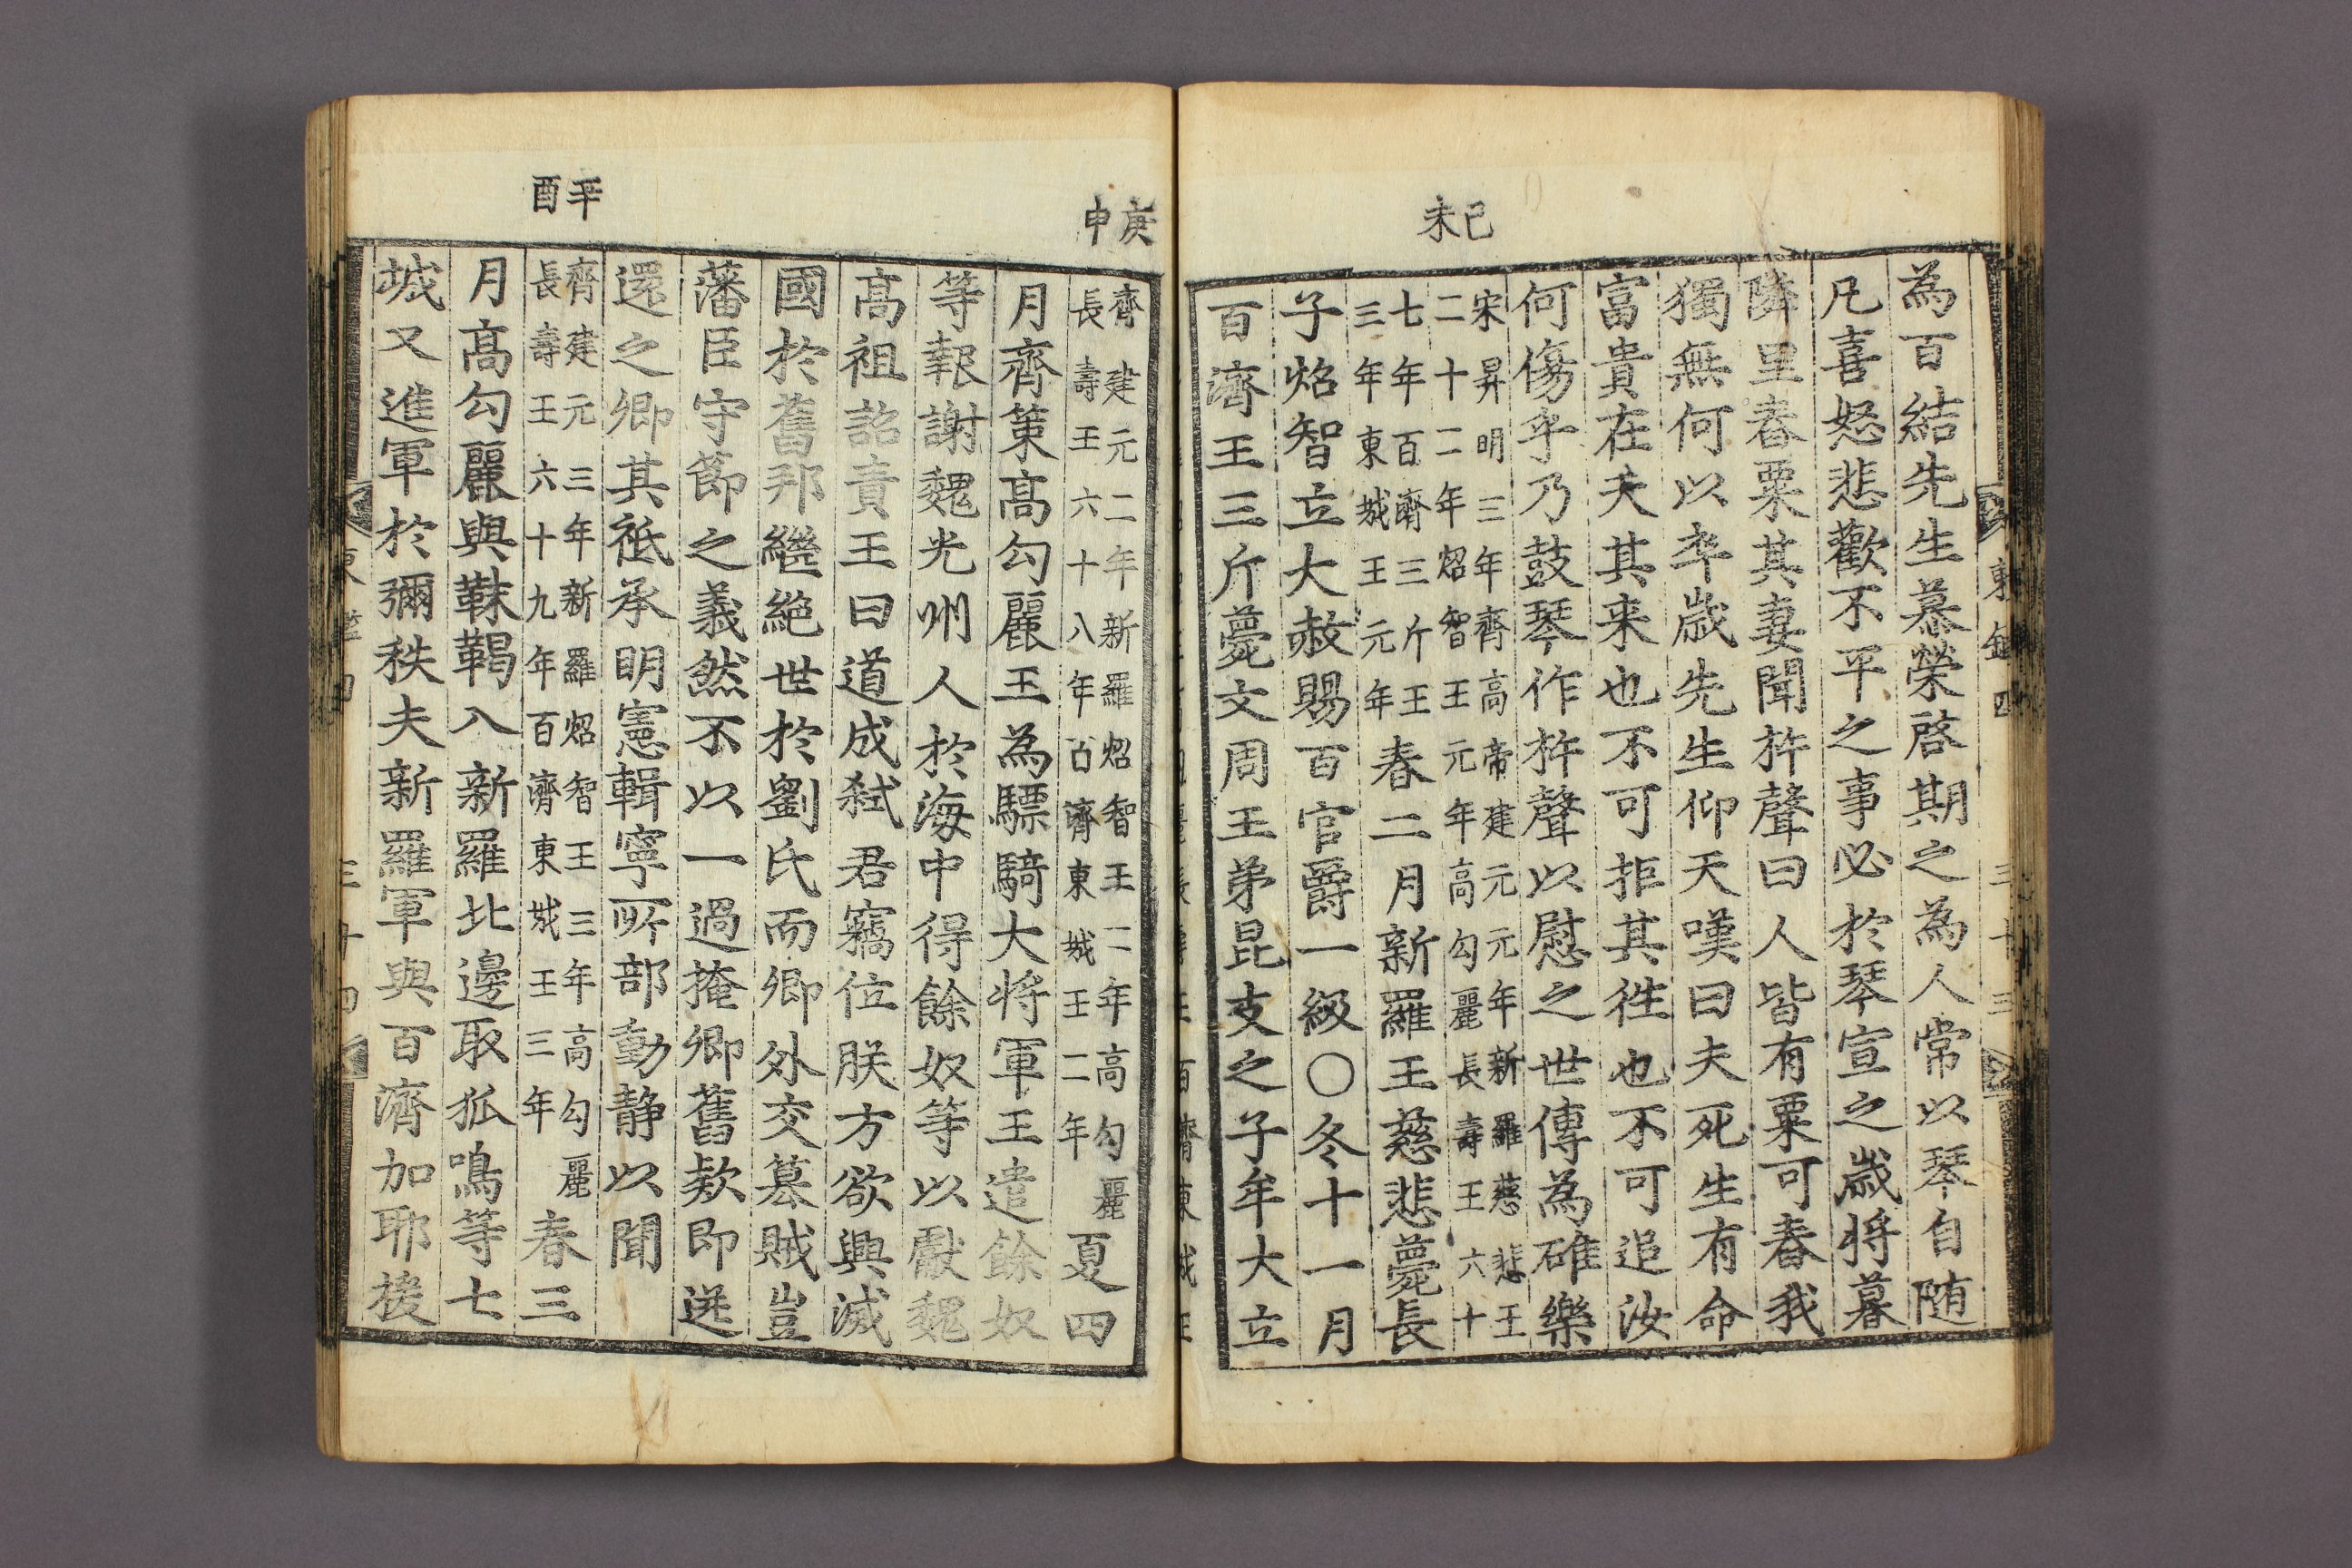 己未
為百結先生慕榮啓期之為人常以琴自随
凡喜怒悲歡不平之事必於琴宣之歳将暮
隣里舂粟其妻聞杵聲曰人皆有粟可舂我
獨無何以卒歳先生仰天嘆曰夫死生有命
富貴在天其来也不可拒其徃也不可追汝
何傷乎乃鼓琴作杵聲以慰之世傳為碓樂
宋昇明三年齊高帝建元元年新羅慈悲王
二十二年炤智王元年高勾麗長壽王六十
七年百濟三斤王
三年東城王元年
春二月新羅王慈悲薨長
子炤智立大赦賜百官爵一級〇冬十一月
百濟王三斤薨文周王弟昆支之子牟大立
庚申
齊建元二年新羅炤智王二年高勾麗
長壽王六十八年百濟東城王二年
夏四
月齊策高勾麗王為驃騎大将軍王遣餘奴
等報謝魏光州人於海中得餘奴等以獻魏
高祖詔責王曰道成弑君竊位朕方欲興滅
國於舊邦繼絶世於劉氏而卿外交簒賊豈
藩臣守節之義然不以一過掩卿舊欵即送
還之卿其祗承明憲輯寧所部動静以聞
辛酉
齊建元三年新羅炤智王三年高勾麗
長壽王六十九年百濟東城王三年
春三
月高勾麗與靺鞨入新羅北邊取狐鳴等七
城又進軍於彌秩夫新羅軍與百濟加耶援